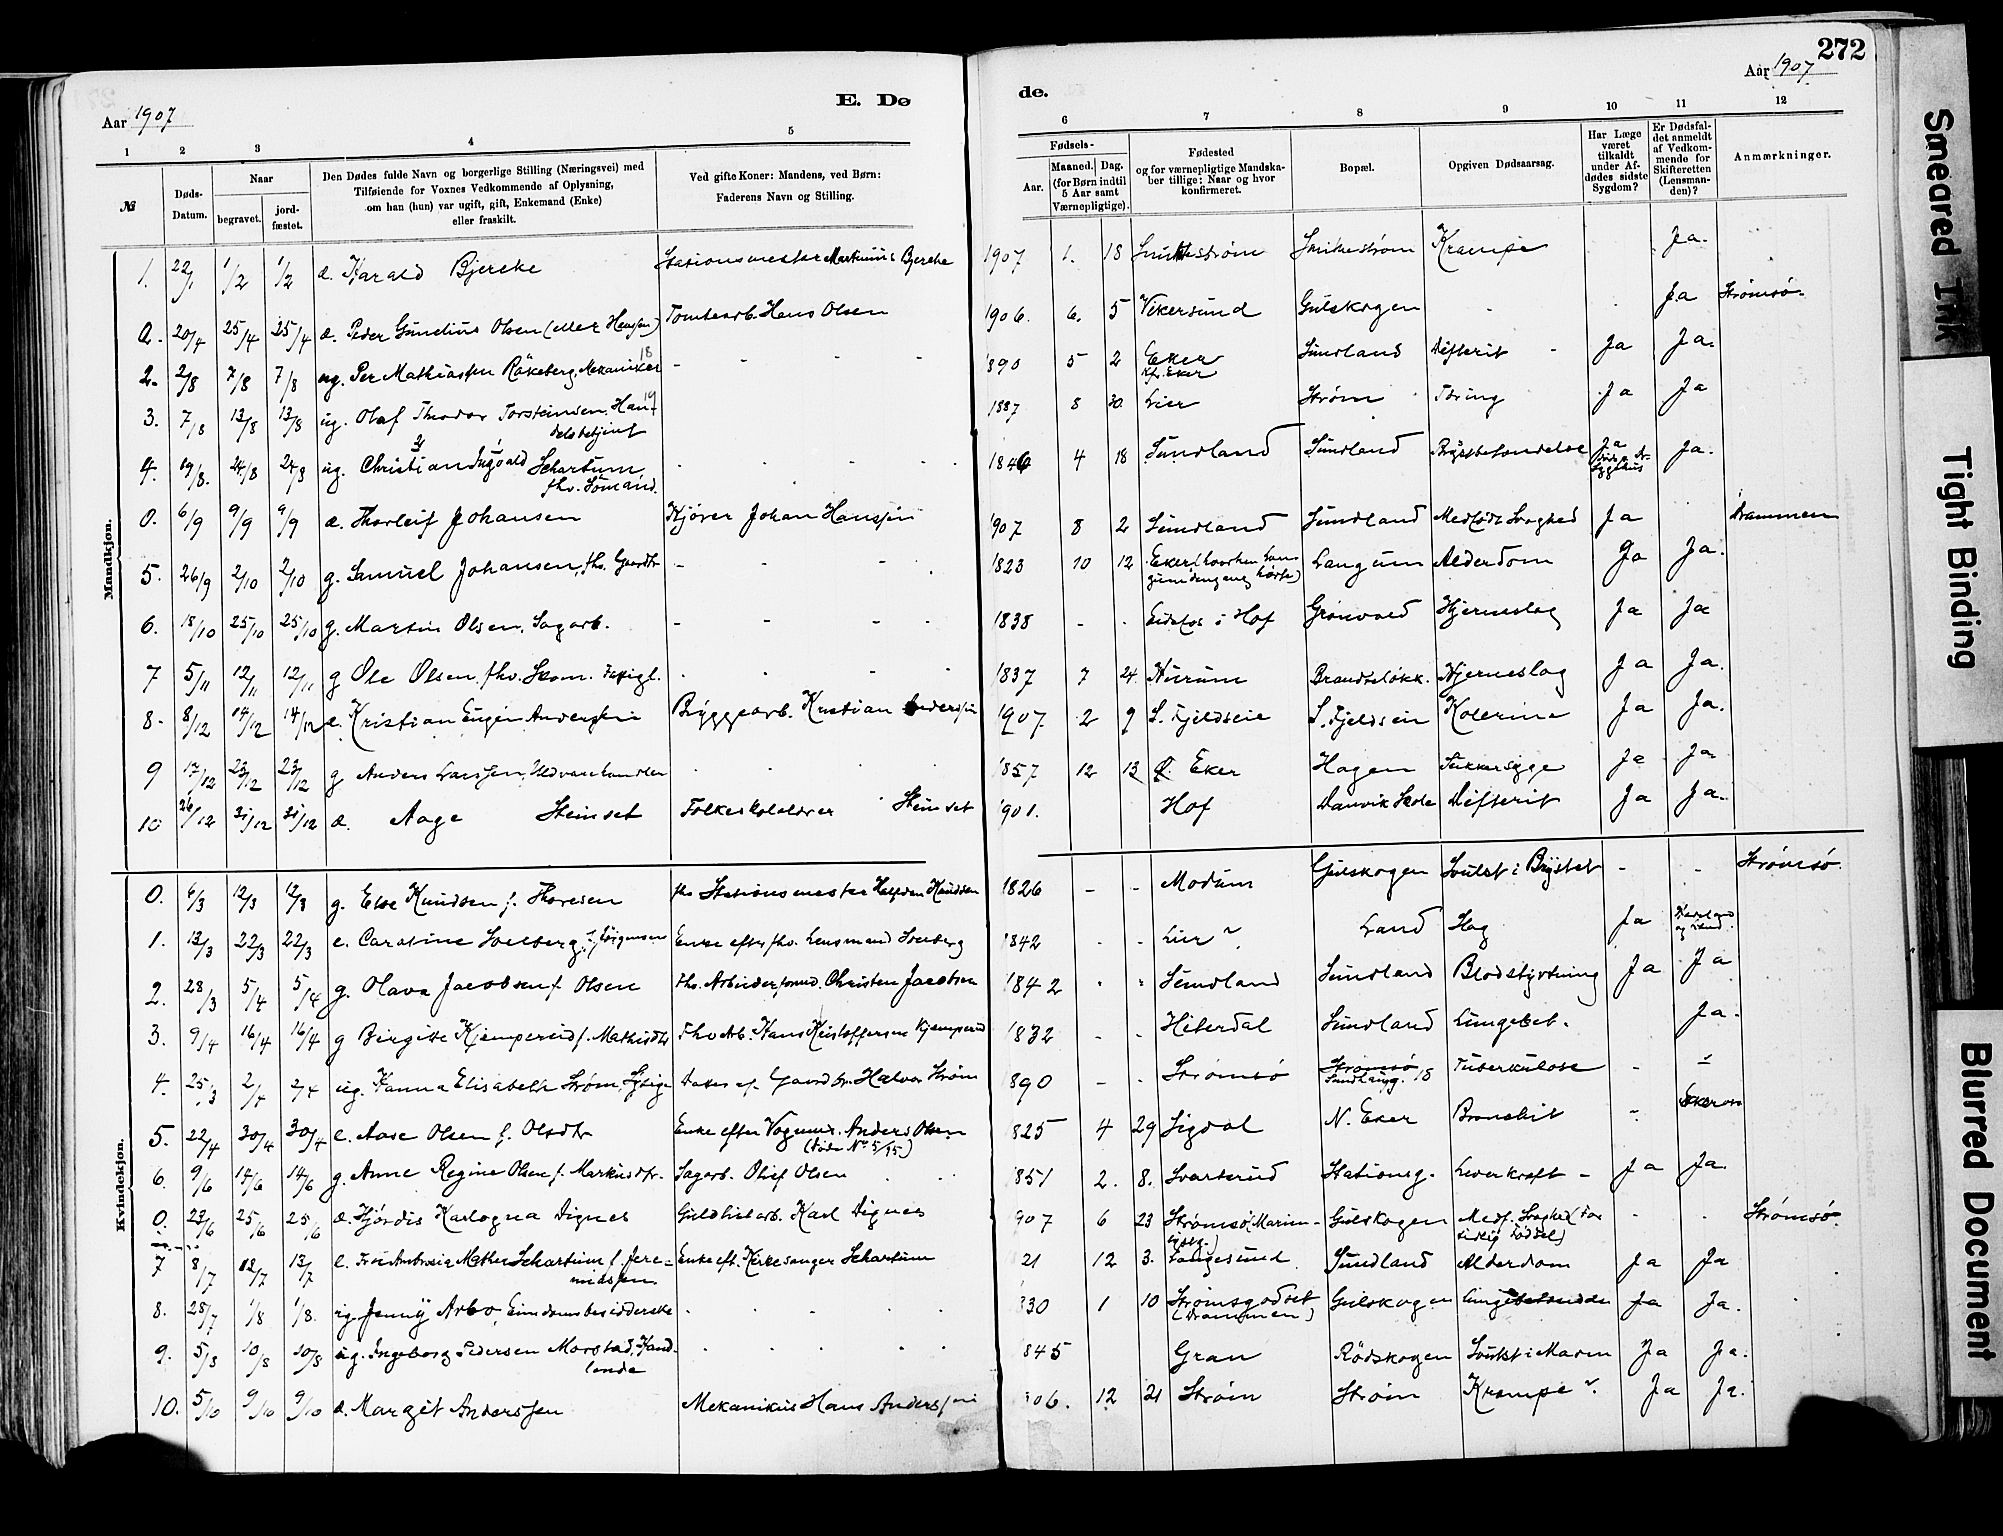 272
Aar 1907
Aar 1907
E. Dø
de.
1 2 3 4 5 6 7 8 9 10 11 12
№
Døds-Datum.
Naar
begravet.
jord-fæstet.
Den Dødes fulde Navn og borgerlige Stilling (Næringsvei) med
Tilføiende for Voxnes Vedkommende af Oplysning,
om han (hun) var ugift, gift, Enkemand (Enke)
eller fraskilt.
Ved gifte Koner: Mandens, ved Børn:
Faderens Navn og Stilling.
Fødsels-
Aar.
Maaned. Dag.
(for Børn indtil
5 Aar samt
Værnepligtige).
Fødested
og for værnepligtige Mandska-
ber tillige: Naar og hvor
konfirmeret.
Bopæl.
Opgiven Dødsaarsag.
Har Læge
været
tilkaldt
under Af-
dødes sidste
Sygdom?
Er Dødsfal-
det anmeldt
af Vedkom-
mende for
Skifteretten
(Lensman-
den)?
Anmærkninger.
Mandkjøn.
1. 22/1 1/2 1/2 d. Harald Bjercke Stationsmester Martinius Bjercke 1907 1. 18 Smithestrøm Smithestrøm Krampe Ja.
0. 20/4 25/4 25/4 d. Peder Gundius Olsen (eller Hansen) Tomtearb. Hans Olsen 1906. 6. 5 Vikersund Gulskogen Ja Strømsø
2. 2/8 7/8 7/8 ug. Per Mathiassen Råkeberg, Mekaniker 18 1890 5 2 Eker Kf. Eker Sundland Difterit Ja Ja.
3. 7/8 13/8 13/8 ug. Olaf Theodor Torsteinsen, Han-delsbetjent 19 1887 8 30. Lier Strøm Tæring Ja Ja
4. 19/8. 24/8 24/8 ug. Christian Ingvald Schartum, fhv. Sømand. 1846 4 18 Sundland Sundland Ja Ja.
0. 6/9 9/9 9/9 d. Thorleif Johansen Kjører Johan Hanssen 1907 8 2 Sundland Sundland Medfødt Svaghed Ja Drammen
5. 26/9 2/10 2/10 g. Samuel Johansen, fhv. Gaardbr. 1823 10 12 Eker (hvorhen Lan-gum dengang hørte) Langum Alderdom Ja Ja.
6. 18/10 25/10 25/10 g. Martin Olsen, Sagarb. 1838 - - Eidsfos i Hof Grønvold Hjerneslag Ja Ja
7 5/11 12/11 12/11 g Ole Olsen, fhv. Skom. Fattigl. 1837 7 24. Hurum Brandseløkk. Hjerneslag Ja Ja.
8. 8/12 14/12 14/12 d. Kristian Eugen Anderssen Bryggearb. Kristian Anderssen 1907. 2 9 S. Fjeldseie S. Fjeldseie Kolerine Ja Ja.
9 17/12 23/12 23/12 g Anders Larssen, Uldvarehandler 1857 12 13 Ø. Eker Hagen Sukkersyge Ja Ja
10 26/12 31/12 31/12 d. Aage Steinset Folkeskolelærer Steinset 1901. Hof Danvik Skole Difterit Ja Ja.
Kvindekjøn.
0. 6/3 12/3 12/3 g. Else Knudsen f. Thoresen fhv. Stationsmester Halfdan Knudsen 1826 - - Modum Gulskogen Svulst i Brystet - - Strømsø.
1. 13/3 22/3 22/3 e. Caroline Solberg, f. Jørgensen Enke efter fhv. Lensmand Solberg 1842 - - Lier ? Land Slag Ja
2. 28/3 5/4 5/4 g. Olava Jacobsen f. Olsen Fhv. Arbeiderformd. Christen Jacobsen 1842 Sundland Sundland Blodstyrtning Ja Ja
3. 9/4 16/4 16/4 g Birgitte Kjemperud f. Mathisdtr Fhv Arb. Hans Kristoffersen Kjemperud 1832 - - Hiterdal Sundland Lungebet. Ja.
4. 25/3 2/4 2/4 ug. Hanna Elisabeth Strøm, Syerske Datter af Gaardbr. Halvor Strøm 890 - - Strømsø Strømsø Sundhaug. 18 Tuberkulose -
5. 22/4 30/4 30/4 e. Aase Olsen f. Olsdtr Enke efter Vognmd. Anders Olsen (døde No 5/95) 825 4 29 Sigdal N. Eker Bronchit -
6. 9/6 14/6 14/6 g. Anne Regine Olsen f. Markusdtr. Sagarb. Oluf Olsen 851 2. 8. Svarterud Stationsg. Leverkræft - Ja Ja.
0. 23/6 25/6 25/6 d. Hjørdis Karlogna Dignes Guldlistarb. Karl Dignes 907 6 23 Strømsø Gulskogen Medf. Svaghed (For tidlig Fødsel) - - Strømsø.
7 8/7 13/7 13/7 e. Schartum f. Jere-miassen. Enke eft. Kirkesanger Schartum 21 12 3. Langesund Sundland Alderdom Ja Ja
8. 28/7 1/8 1/8. ug. Jenny Arbo, Eiendomsbesidderske 830 1 10 Strømsgodset (Drammen) Gulskogen Lungebetændelse Ja Ja.
9. 5/8 10/8 10/8 ug. Ingeborg Pedersen Morstad, Hand-lende 845 Gran Rødskogen Svulst i Maven Ja Ja.
10. 5/10 9/10 9/10 d. Margit Anderssen Mekanikus Hans Anderssen 906. 12 21 Strøm Strøm Krampe ?. Ja Ja.
Smeared Ink
Tight Binding
Blurred Document